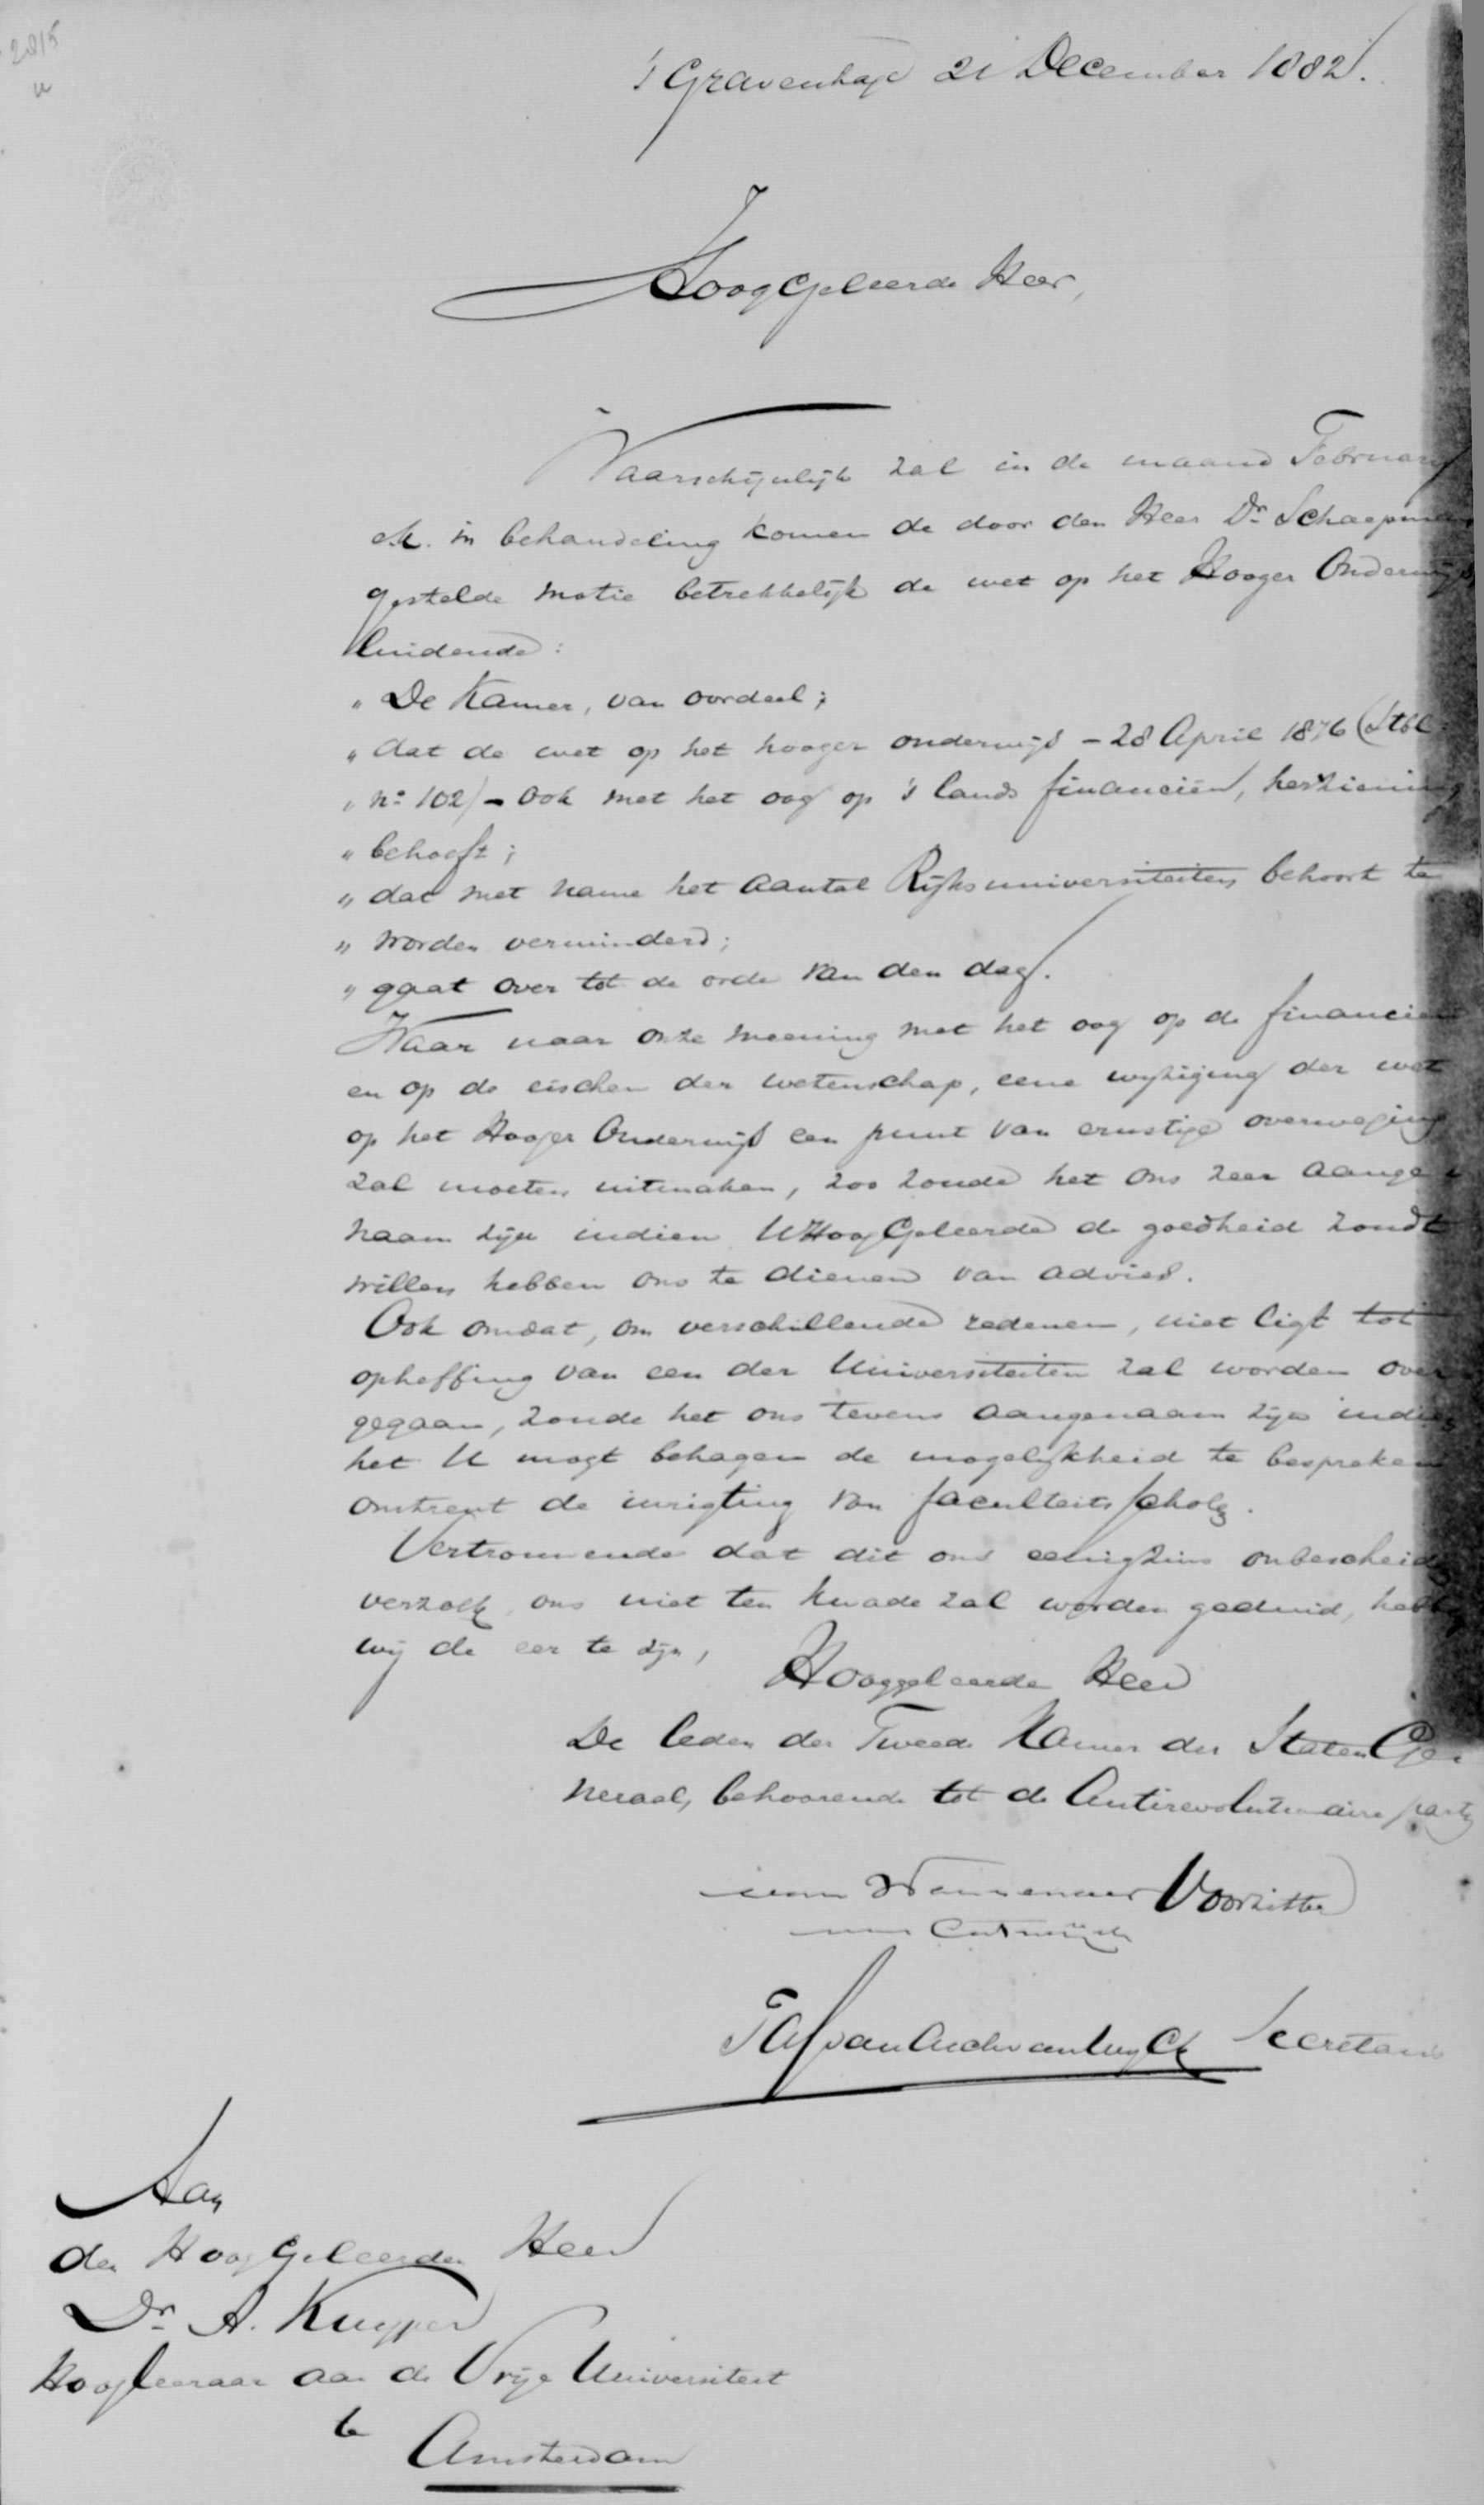 2815
's Gravenhage 21 December 1882.
HoogGeleerde Heer,
Waarschijnlijk zal in de maand February
ek. in behandeling komen de door den Heer Dr. Schaepman
gestelde motie betrekkelijk de wet op het Hooger Onderwijs
luidende:
" De Kamer, van oordeel;
" dat de wet op het hooger onderwijs – 28 April 1876 (Stbl.
" no. 102) – ook met het oog op 's lands financiën, herziening
" behoeft;
" dat met name het aantal Rijksuniversiteiten behoort te
" worden verminderd;
" gaat over tot de orde van den dag.
Waar naar onze meening met het oog op de financien
en op de eischen der wetenschap, eene wijziging der wet
op het Hooger Onderwijs een punt van ernstige overweging
zal moeten uitmaken, zoo zoude het ons zeer aange-
naam zijn indien UHoogGeleerde de goedheid zoudt
willen hebben ons te dienen van advies.
Ook omdat, om verschillende redenen, niet ligt tot
opheffing van een der Universiteiten zal worden over
gegaan, zoude het ons tevens aangenaam zijn indien
het U mogt behagen de mogelijkheid te bespreken
omtrent de inrigting van faculteits scholen.
Vertrouwende dat dit ons eenigzins onbescheiden
verzoek, ons niet ten kwade zal worden geduid, hebben
wij de eer te zijn,
Hooggeleerde Heer
De leden der Tweede Kamer der Staten Ge-
neraal, behoorende tot de Antirevolutionaire partij
van Wassenaer Voorzitter
van Catwijck
van Asch van Wijck Secretaris
Aan
den HoogGeleerden Heer
Dr. A. Kuyper
Hoogleeraar aan de Vrije Universiteit
te
Amsterdam